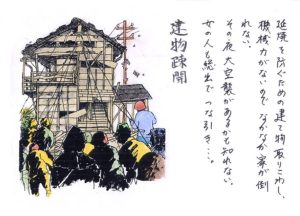 延焼を防ぐための建て物取りこわし、
機械力がないので なかなか家が倒
れない、
その夜 大空襲があるかも知れない、
女の人も総出で つな引き…。
建物疎開